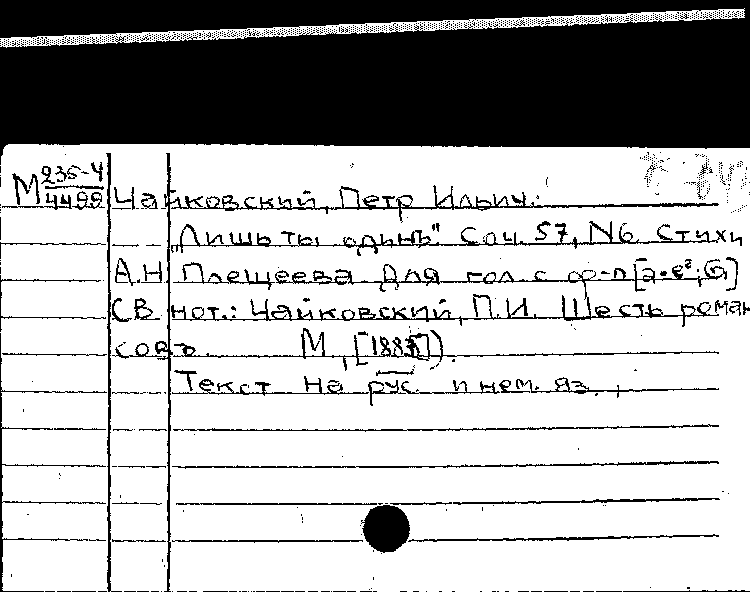 М 235-4
4499 Чайковский, Петр Ильич.
„Лишь ты одинъ". Соч. 57, №6. Стихи
А.Н. Плещеева. Для гол. с ф-п
СВ. нот.: Чайковский, П.И. Шесть роман
совъ. М., [188
Текст на рус. и нем. яз.